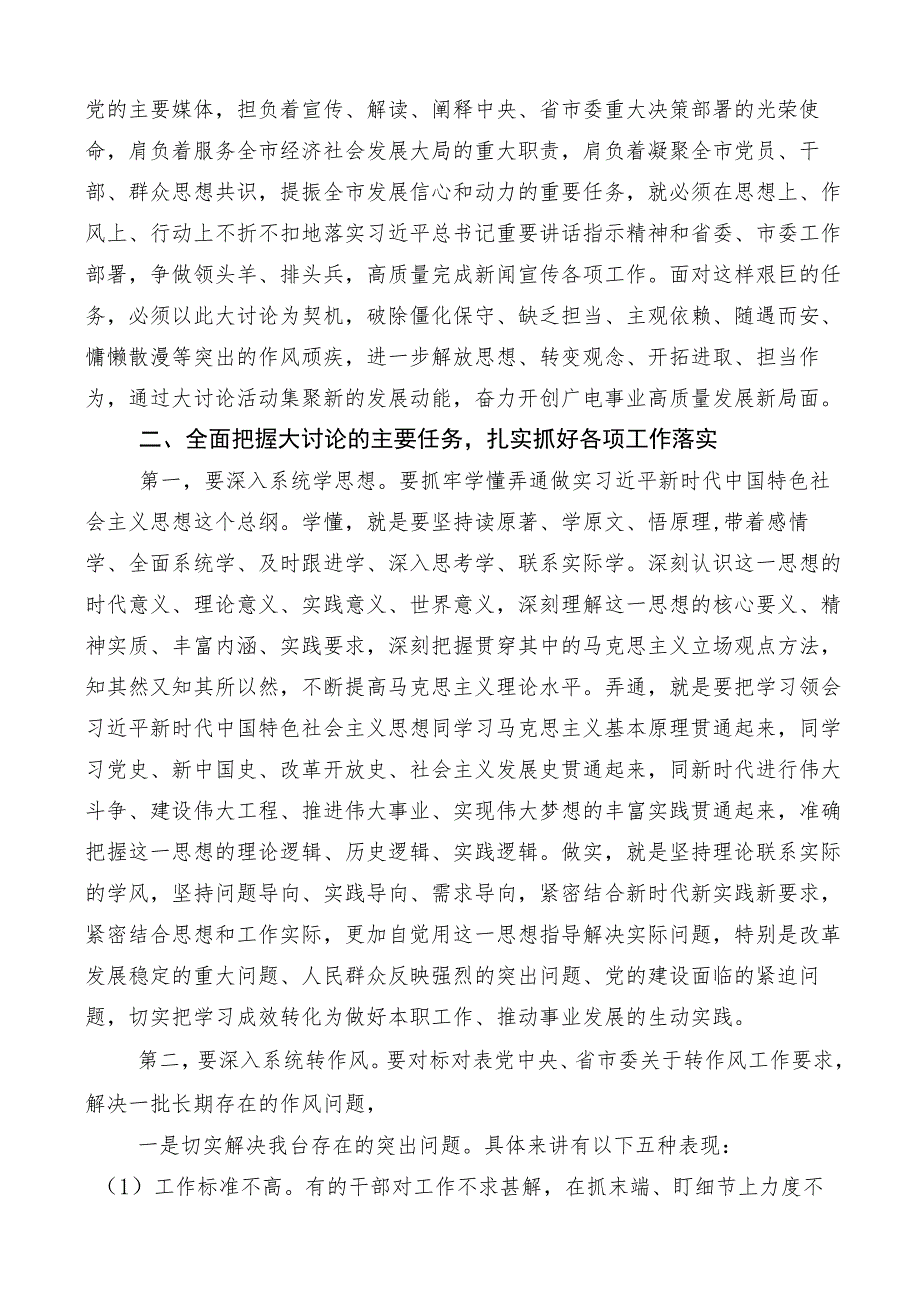 党的主要媒体，担负着宣传、解读、阐释中央、省市委重大决策部署的光荣使
命，肩负着服务全市经济社会发展大局的重大职责，肩负着凝聚全市党员、干
部、群众思想共识，提振全市发展信心和动力的重要任务，就必须在思想上、作
风上、行动上不折不扣地落实习近平总书记重要讲话指示精神和省委、市委工作
部署，争做领头羊、排头兵，高质量完成新闻宣传各项工作。面对这样艰巨的任
务，必须以此大讨论为契机，破除僵化保守、缺乏担当、主观依赖、随遇而安、
慵懒散漫等突出的作风顽疾，进一步解放思想、转变观念、开拓进取、担当作
为，通过大讨论活动集聚新的发展动能，奋力开创广电事业高质量发展新局面。
二、全面把握大讨论的主要任务，扎实抓好各项工作落实
第一，要深入系统学思想。要抓牢学懂弄通做实习近平新时代中国特色社
会主义思想这个总纲。学懂，就是要坚持读原著、学原文、悟原理,带着感情
学、全面系统学、及时跟进学、深入思考学、联系实际学。深刻认识这一思想的
时代意义、理论意义、实践意义、世界意义，深刻理解这一思想的核心要义、精
神实质、丰富内涵、实践要求，深刻把握贯穿其中的马克思主义立场观点方法，
知其然又知其所以然，不断提高马克思主义理论水平。弄通，就是要把学习领会
习近平新时代中国特色社会主义思想同学习马克思主义基本原理贯通起来，同学
习党史、新中国史、改革开放史、社会主义发展史贯通起来，同新时代进行伟大
斗争、建设伟大工程、推进伟大事业、实现伟大梦想的丰富实践贯通起来，准确
把握这一思想的理论逻辑、历史逻辑、实践逻辑。做实，就是坚持理论联系实际
的学风，坚持问题导向、实践导向、需求导向，紧密结合新时代新实践新要求，
紧密结合思想和工作实际，更加自觉用这一思想指导解决实际问题，特别是改革
发展稳定的重大问题、人民群众反映强烈的突出问题、党的建设面临的紧迫问
题，切实把学习成效转化为做好本职工作、推动事业发展的生动实践。
第二，要深入系统转作风。要对标对表党中央、省市委关于转作风工作要求，
解决一批长期存在的作风问题，
一是切实解决我台存在的突出问题。具体来讲有以下五种表现：
（1）工作标准不高。有的干部对工作不求甚解，在抓末端、盯细节上力度不